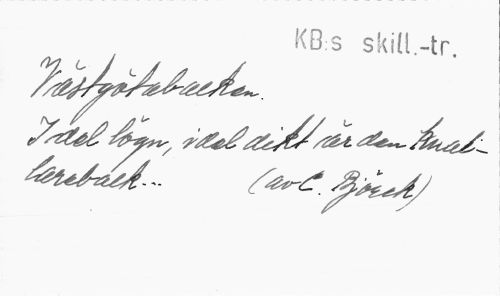 KB:s skill.-tr.
Västgötabacken.
Idel lögn, idel dikt är den knal-
lareback...   (av C. Björck)